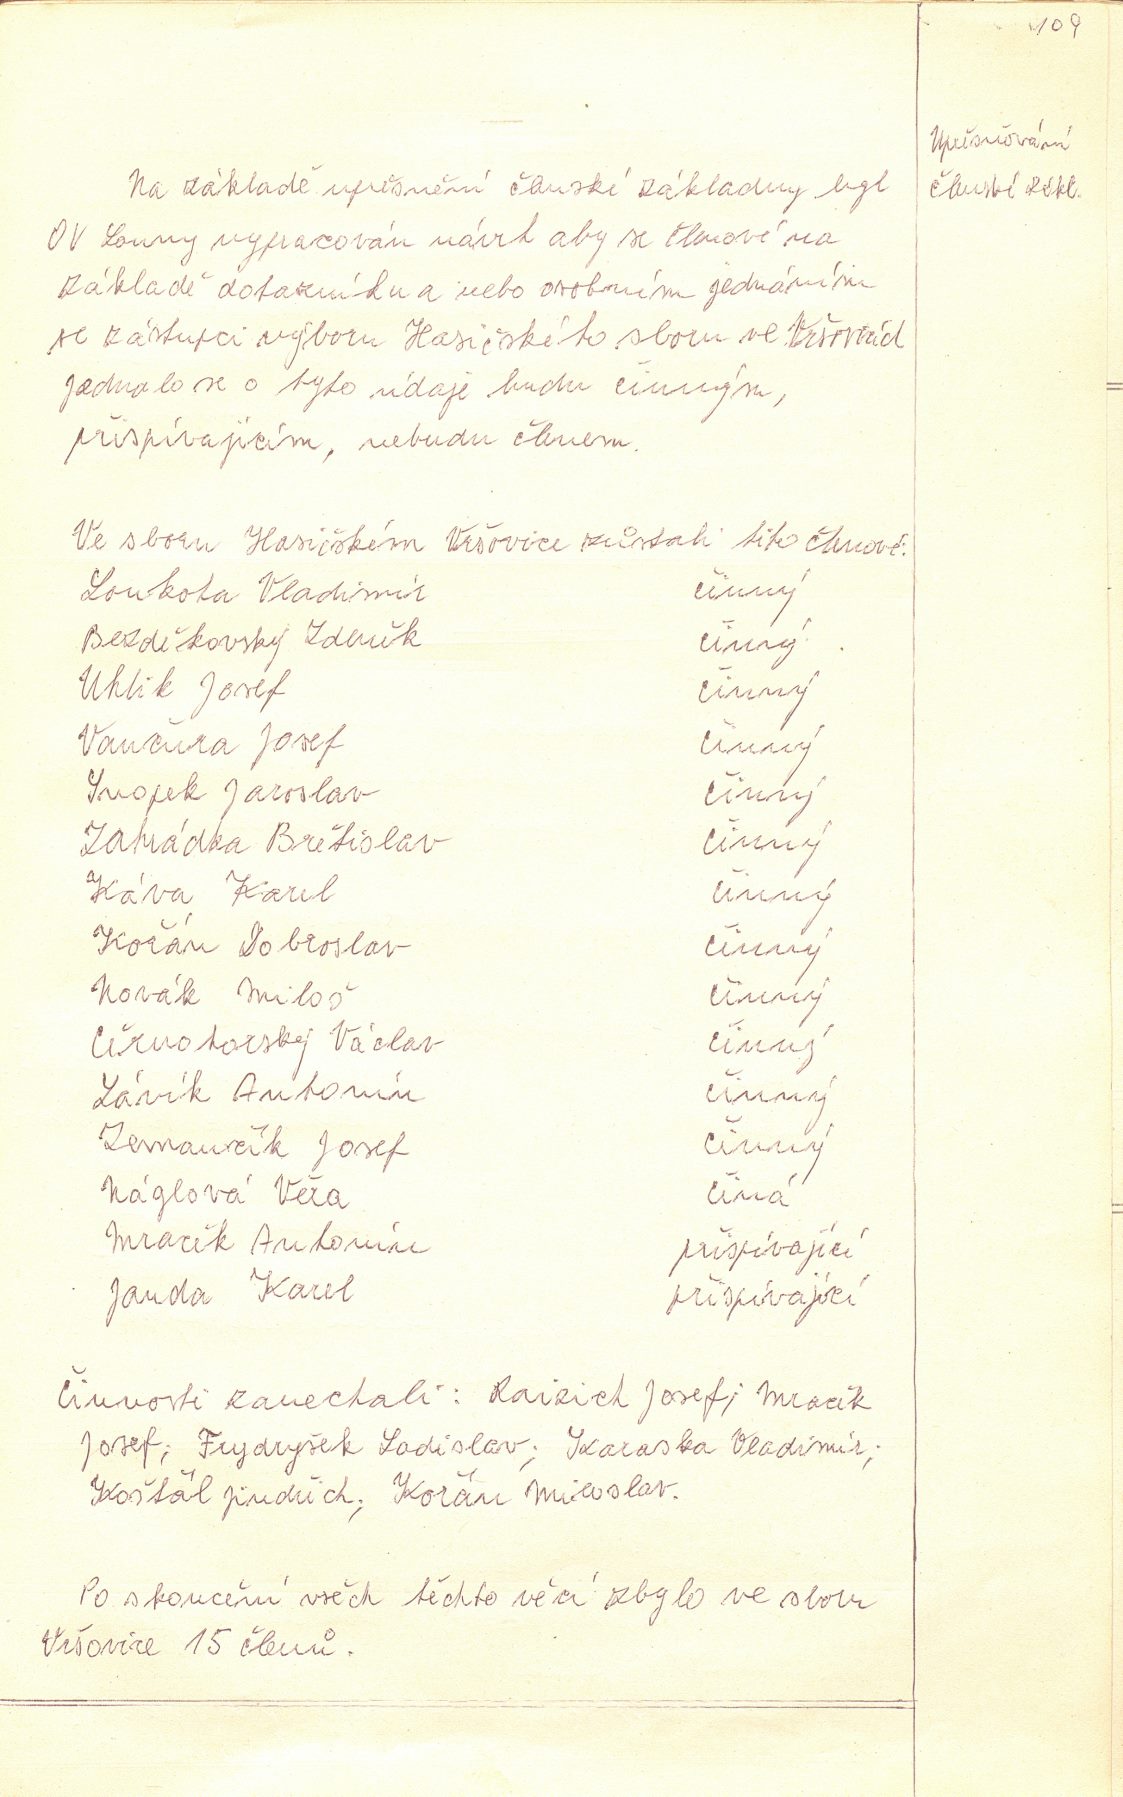 109
Upřesňování
členské zákl.
Na základě upřesnění členské základny byl
OV Louny vypracován návrh aby se členové na
základě dotazníku a nebo osobním jednáním
se zástupci výboru Hasičského sboru ve Vršovicích
jednalo se o tyto údaje budu činným,
přispívajícím, nebudu členem.
Ve sboru Hasičském Vršovice zůstali tito členové:
Loukota Vladimír činný
Bezděkovský Zdeněk činný
Uhlík Josef činný
Vančura Josef činný
Snopek Jaroslav činný
Zahrádka Břetislav činný
Káva Karel činný
Kořán Dobroslav činný
Novák Miloš činný
Černohorský Václav činný
Lávík Antonín činný
Zemančík Josef činný
Náglová Věra činá
Mraček Antonín přispívající
Janda Karel přispívající
Činnosti zanechali: Josef; Mraček
Josef; Frydryšek Ladislav; Karaska Vladimír;
Koštál Jindřich; Kořán Miloslav.
Po skončení všech těchto věcí zbylo ve sboru
Vršovice 15 členů.